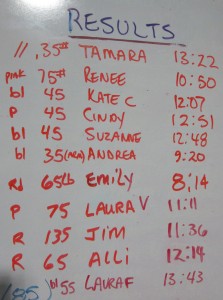 RESULTS
// .35# TAMARA 13:22
pink 75# RENEE 10:50
bl 45 KATE C 12:07
P 45 CINDY 12:51
bl 45 SUZANNE 12:48
bl 35 ANDREA 9:20
Rd 65lb EMILY 8:14
P 75 LAURA V 11:11
R 135 JIM 11:36
R 65 ALLI 12:14
(85) bl 55 LAURA F 13:43